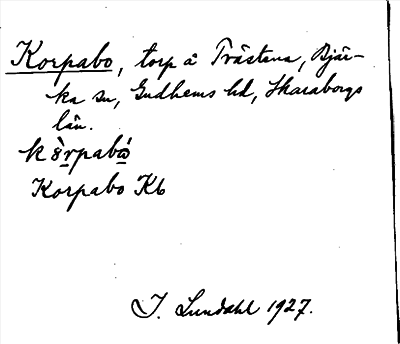 Korpabo, torp å Trästena, Bjär-
ka sn, Gudhems hd, Skaraborgs
län.
Korpabo Kb
I. Lundahl 1927.